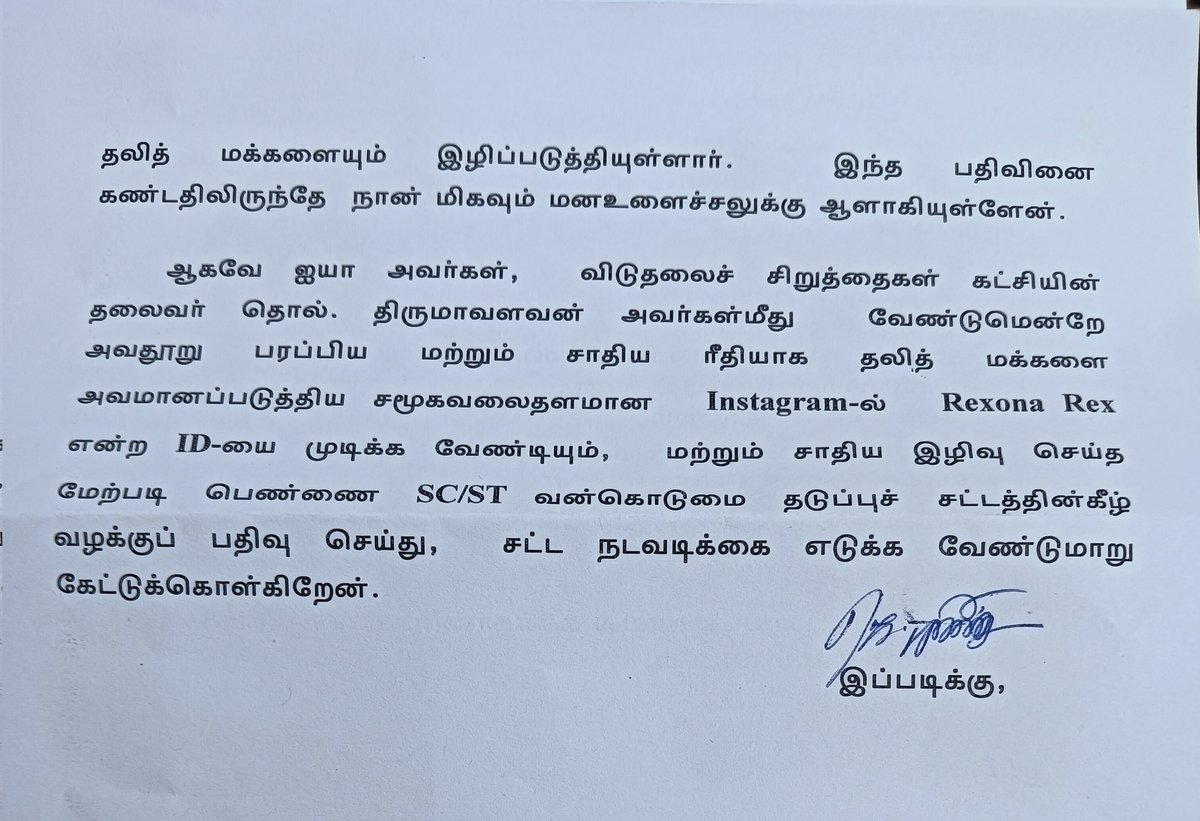 தலித் மக்களையும் இழிப்படுத்தியுள்ளார். இந்த பதிவினை
கண்டதிலிருந்தே நான் மிகவும் மனஉளைச்சலுக்கு ஆளாகியுள்ளேன்.
ஆகவே ஐயா அவர்கள், விடுதலைச் சிறுத்தைகள் கட்சியின்
தலைவர் தொல். திருமாவளவன் அவர்கள்மீது வேண்டுமென்றே
அவதூறு பரப்பிய மற்றும் சாதிய ரீதியாக தலித் மக்களை
அவமானப்படுத்திய சமூகவலைதளமான Instagram-ல் Rexona Rex
என்ற ID-யை முடிக்க வேண்டியும், மற்றும் சாதிய இழிவு செய்த
மேற்படி பெண்ணை SC/ST வன்கொடுமை தடுப்புச் சட்டத்தின்கீழ்
வழக்குப் பதிவு செய்து, சட்ட நடவடிக்கை எடுக்க வேண்டுமாறு
கேட்டுக்கொள்கிறேன்.
இப்படிக்கு,